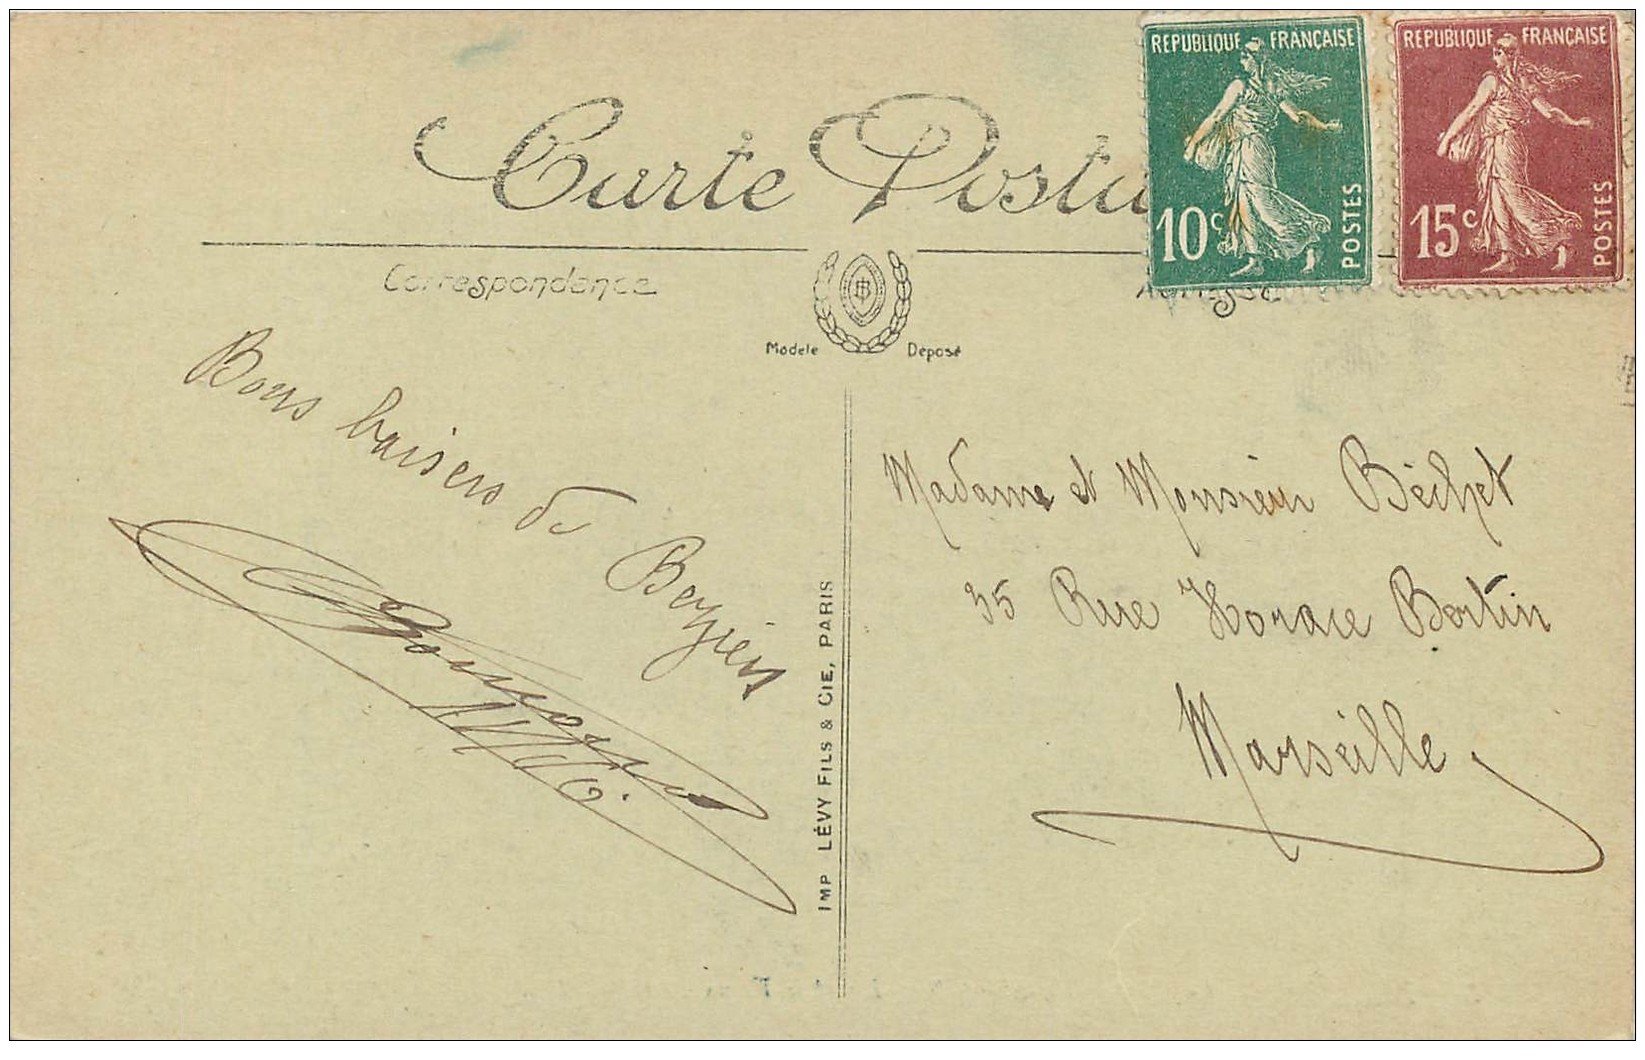 Carte Posta
REPUBLIQUE FRANÇAISE
10c
POSTES
REPUBLIQUE FRANÇAISE
15c
POSTES
Correspondance
Modèle Déposé
Bons baisers de Bezièrs
IMP LÉVY FILS & CIE, PARIS
Madame et Monsieur Béchet
35 Rue Horace Bertin
Marseille